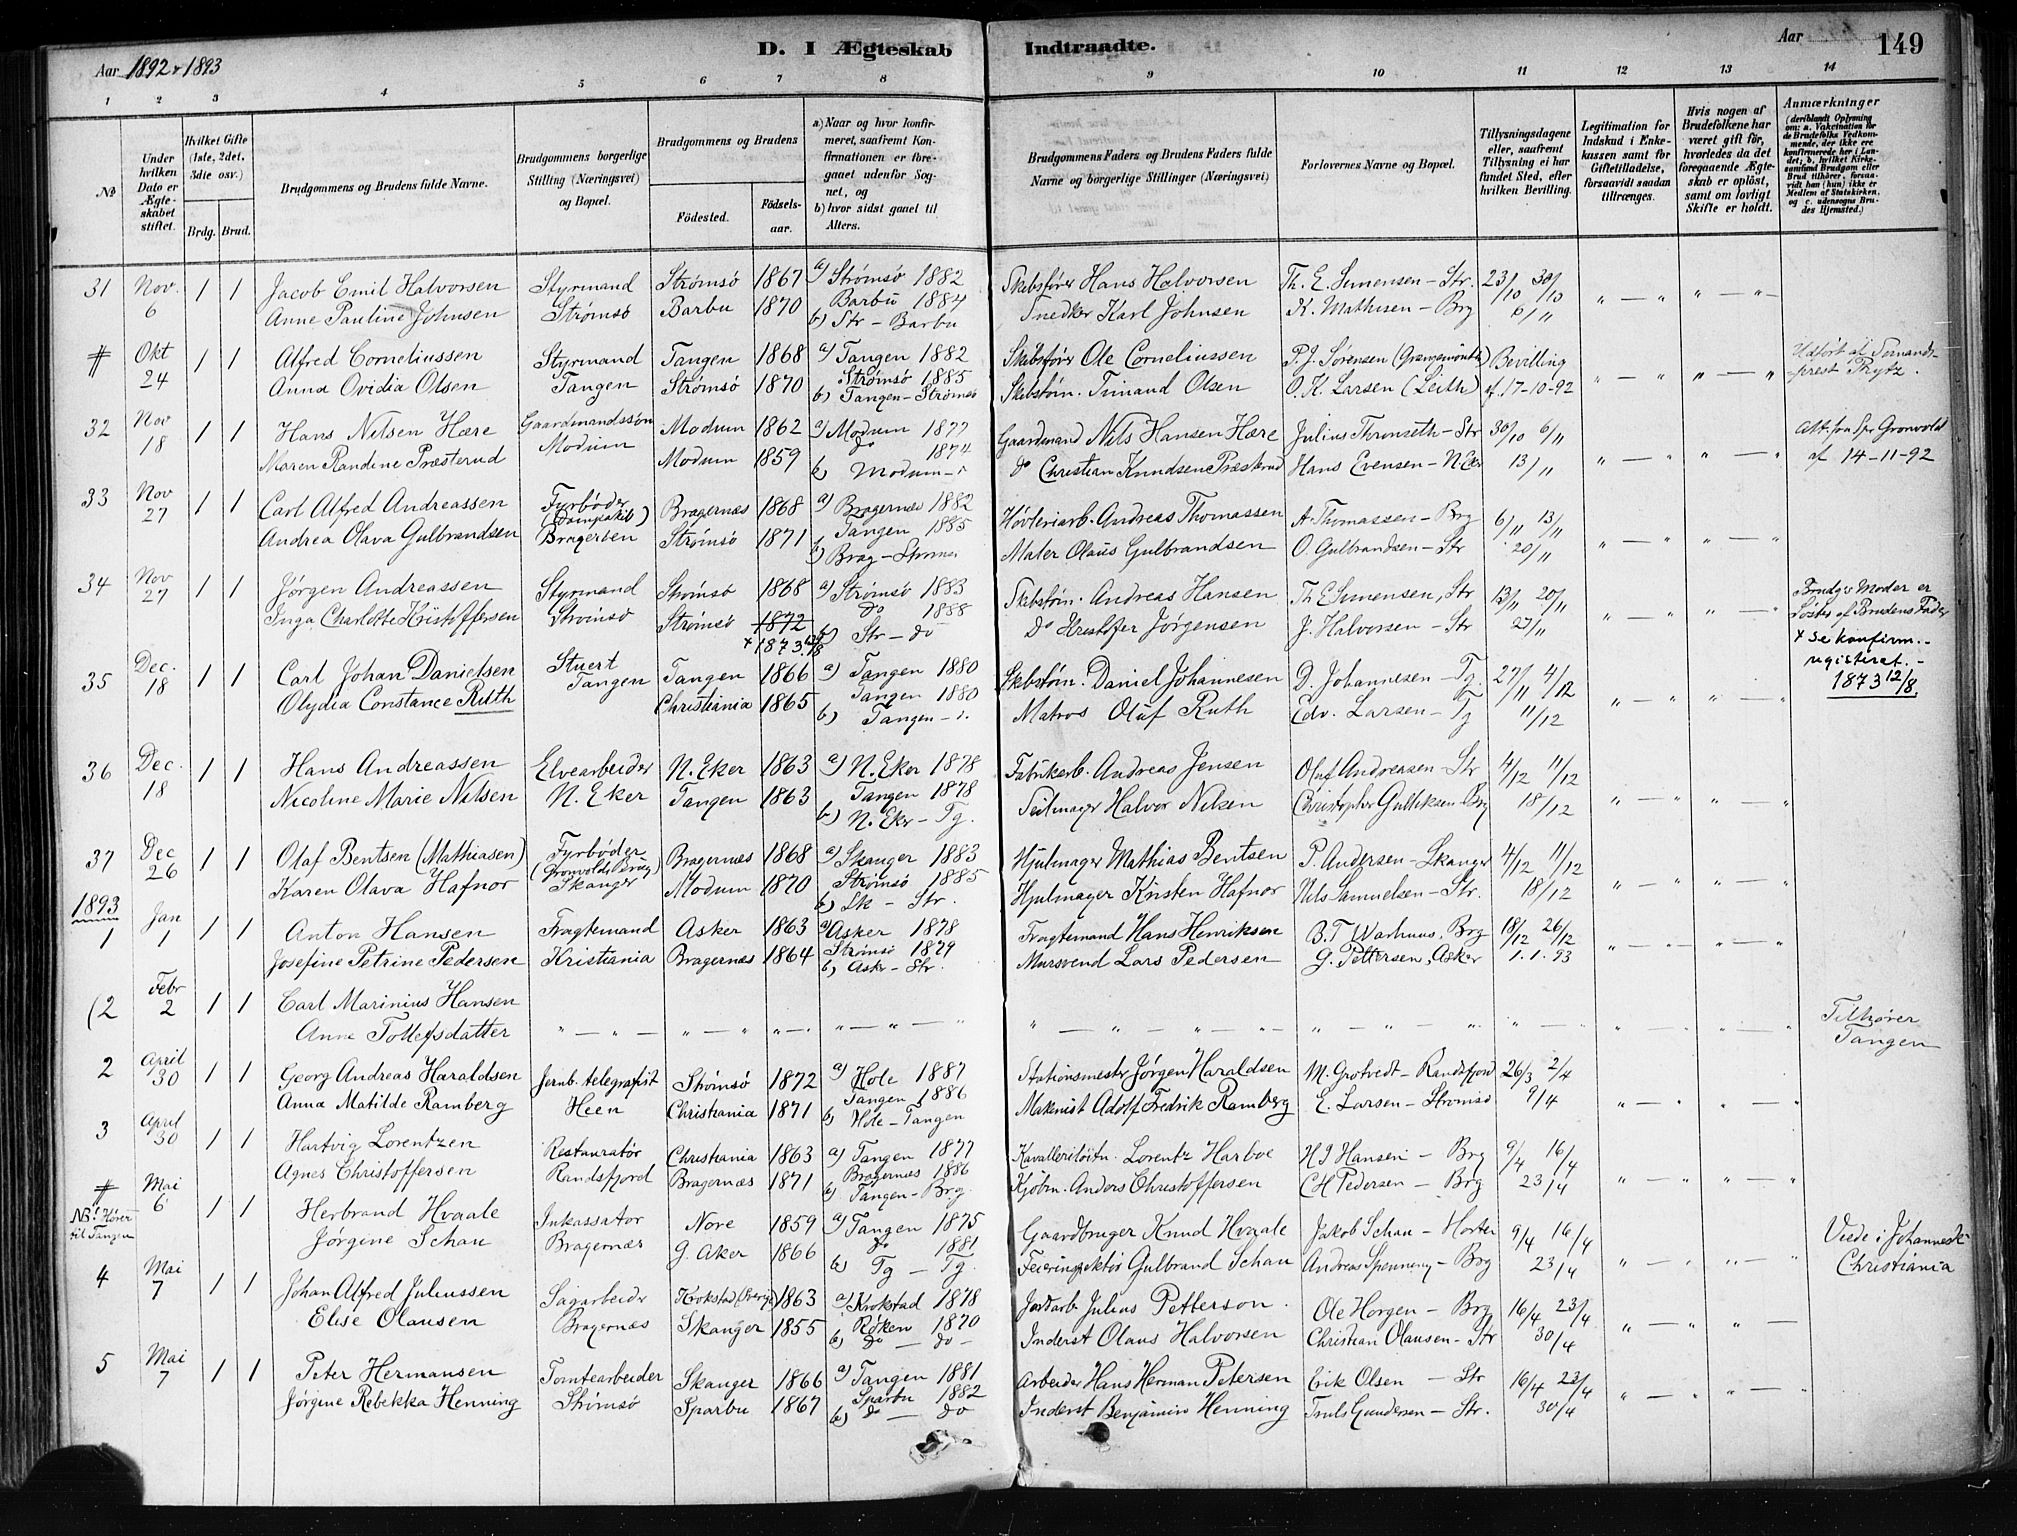 Aar 1892 & 1893
D. I Ægteskab Indtraadte.
Aar
149
1 2 3 4 5 6 7 8 9 10 11 12 13 14
No
Under hvilken Dato er Ægteskabet stiftet.
Hvilket Gifte (1ste, 2det, 3die osv.)
Brdg. Brud.
Brudgommens og Brudens fulde Navne.
Brudgommens borgerlige Stilling (Næringsvei) og Bopæl.
Brudgommens og Brudens
Fødested.
Fødselsaar.
a) Naar og hvor konfirmeret, saafremt Konfirmationen er foregaaet udenfor Sognet, og
b) hvor sidst gaaet til Alters.
Brudgommens Faders og Brudens Faders fulde Navne og borgerlige Stillinger (Næringsvei)
Forlovernes Navne og Bopæl.
Tillysningsdagene eller, saafremt Tillysning ei har fundet Sted, efter hvilken Bevilling.
Legitimation for Indskud i Enkekassen samt for Giftetilladelse, forsaavidt saadan tiltrænges.
Hvis nogen af Brudefolkene har været gift før, hvorledes da det foregaaende Ægteskab er opløst, samt om lovligt Skifte er holdt.
Anmærkninger (deriblandt Oplysning om: a. Vaccination for de Brudefolks Vedkommende, der ikke ere konfirmerede her i Landet; b. hvilket Kirkesamfund Brudgom eller Brud tilhører, forsaavidt han (hun) ikke er Medlem af Statskirken, og c. udensogns Brudes Hjemsted.)
31 Nov. 6 1 1 Jacob Emil Halvorsen Styrmand Strømsø 1867 a) Strømsø 1882 Skibsfører Hans Halvorsen Th. E. Simensen - Str. 23/10 30/10
Anne Pauline Johnsen Strømsø Barbu 1870 Barbu 1884 Snedker Karl Johnsen K. Mathisen - Brg 6/11 " — " " — "
b) Str - Barbu
# Okt 24 1 1 Alfred Corneliussen Styrmand Tangen 1868 a) Tangen 1882 Skibsfører Ole Corneliussen P. J. Sørensen (Grangemouth) Bevilling Udført af
Anna Ovidia Olsen Tangen Strømsø 1870 Strømsø 1885 Skibsførn. Timand Olsen O. K. Larsen (Leith) af 17-10-92 " — " " — " prest Thytz.
b) Tangen - Strømsø
32 Nov 18 1 1 Hans Nilsen Hære Gaardmandssøn Modum 1862 a) Modum 1877 Gaardmand Nils Hansen Hære Julius Thronseth - Str 30/10 6/11 Att. fra Spr Gronvold
Maren Randine Præsterud Modum Modum 1859 do 1874 do Christian Knudsen Præsterud Hans Evensen - N. Eker 13/11 " — " " — " af 14-11-92
b) Modum - "
33 Nov 27 1 1 Carl Alfred Andreassen Fyrbøder (Dampskib) Bragernæs 1868 a) Bragernæs 1882 Høvleriarb. Andreas Thomassen A. Thomassen - Brg 6/11 13/11
Andrea Olava Gulbrandsen Bragerøen Strømsø 1871 Tangen 1885 Maler Olaus Gulbrandsen O. Gulbrandsen - Str 20/11 " — " " — "
b) Brag - Strømsø
34 Nov 27 1 1 Jørgen Andreassen Styrmand Strømsø 1868 a) Strømsø 1883 Skibsførn. Andreas Hansen Th E Simensen, Str 13/11 20/11 Brudgs Moder er
Inga Charlotte Kristoffersen Strømsø Strømsø 1872 do 1888 Do Kristofer Jørgensen J. Halvorsen - Str 27/11 " — " " — " Søster af Brudens Fader
+ 1873 12/8 b) Str - do + Se konfirm.-
registeret. -
1873 12/8.
35 Dec. 18 1 1 Carl Johan Danielsen Stuert Tangen 1866 a) Tangen 1880 Skibsførn. Daniel Johannesen D. Johannesen - Tg. 27/11 4/12
Olydia Constance Ruth Tangen Christiania 1865 Tangen 1880 Matros Oluf Ruth Edv. Larsen - Tg 11/12 " — " " — "
b) Tangen - "
36 Dec. 18 1 1 Hans Andreassen Elvearbeider N. Eker 1863 a) N. Eker 1878 Fabrikarb. Andreas Jensen Oluf Andreasen - Str 4/12 11/12
Nicoline Marie Nilsen N. Eker Tangen 1863 Tangen 1878 Seilmager Halvor Nilsen Christopher Gulliksen - Brg 18/12 " — " " — "
b) N. Eker - Tg.
37 Dec 26 1 1 Olaf Bentsen (Mathiasen) Fyrbøder (Grønvolds Brug) Bragernæs 1868 a) Skanger 1883 Hjulmager Mathias Bentsen P. Andersen - Skanger 4/12 11/12
Karen Olava Hafnor Skanger Modum 1870 Strømsø 1885 Hjulmager Kristen Hafnor Nils Samuelsen - Str. 18/12 " — " " — "
b) Sk - Str.
1893
1 Jan 1 1 1 Anton Hansen Fragtemand Asker 1863 a) Asker 1878 Fragtemand Hans Henriksen B. T Warhuus, Brg 18/12 26/12
Josefine Petrine Pedersen Kristiania Bragernæs 1864 Strømsø 1879 Mursvend Lars Pedersen G. Pettersen, Asker 1.1.93 " — " " — "
b) Asker - Str.
(2 Febr 2 1 1 Carl Marinius Hansen Tilhører
Anne Tollefsdatter " — " — " " — " " — " " — " — " " — " — " — " " — " — " " — " " — " " — " Tangen
2 April 30 1 1 Georg Andreas Haraldsen Jernb. telegrafist Strømsø 1872 a) Hole 1887 Stationsmester Jørgen Haraldsen M. Grotvedt - Randsfjord 26/3 2/4
Anna Matilde Ramberg Heen Christiania 1871 Tangen 1886 Maskinist Adolf Fredrik Ramberg E. Larsen - Strømsø 9/4 " — " " — "
b) Hole - Tangen
3 April 30 1 1 Hartvig Lorentzen Restauratør Christiania 1863 a) Tangen 1877 Kavalleriløitn. Lorentz Harboe H J Hansen - Brg 9/4 16/4
Agnes Christoffersen Randsfjord Bragernæs 1871 Bragernæs 1886 Kjøbm. Anders Christoffersen C H Pedersen - Brg 23/4 " — " " — "
b) Tangen - Brg.
# Mai 6 1 1 Herbrand Hvaale Inkassator Nore 1859 a) Tangen 1875 Gaardbruger Knud Hvaale Jakob Schau - Horten 9/4 16/4 Viede i Johannesk-
NB! Hører til Tangen Jørgine Schau Bragernæs G. Aker 1866 do 1881 Feierinspektør Gulbrand Schau Andreas - Brg 23/4 " — " " — " Christiania
b) Tg - Tg.
4 Mai 7 1 1 Johan Alfred Juliussen Sagarbeider Krokstad (Sverige) 1863 a) Krokstad 1878 Jordarb. Julius Petterson. Ole Horgen - Brg 16/4 23/4
Elise Olausen Bragernæs Skanger 1855 Røken 1870 Inderst Olaus Halvorsen Christian Olausen - Str 30/4 " — " " — "
b) do - do -
5 Mai 7 1 1 Peter Hermansen Tomtearbeider Skanger 1866 a) Tangen 1881 Arbeider Hans Herman Petersen Erik Olsen - Str 16/4 23/4
Jørgine Rebekka Henning Strømsø Sparbu 1867 Sparbu 1882 Inderst Benjamin Henning Truls Gundersen - Str. 30/4 " — " " — "
b) do - do